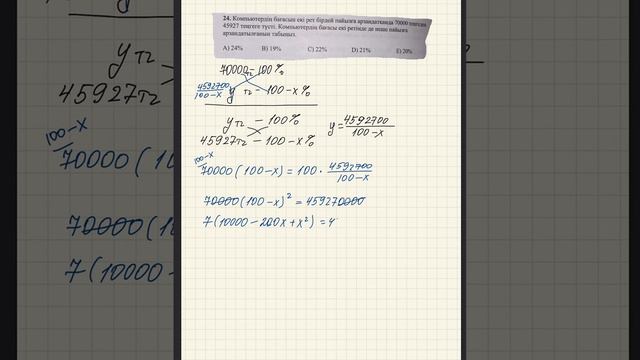 24. Компьютердің бағасын екі рет бірдей пайызға арзандатқанда 70000 теңгеден
45927 теңгеге түсті. Компьютердің бағасы екі ретінде де неше пайызға
арзандатылғанын табыңыз.
A) 24% B) 19% C) 22% D) 21% E) 20%
70000тг – 100%
4592700/100-x y тг – 100-x%
y тг – 100%
45927тг – 100-x%
y = 4592700/100-x
100-x
70000(100-x) = 100 · 4592700/100-x
70000(100-x)² = 459270000
7(10000-200x+x²) = 4
y тг
45927тг
100-x
70000(1
70000(10
7(10000-